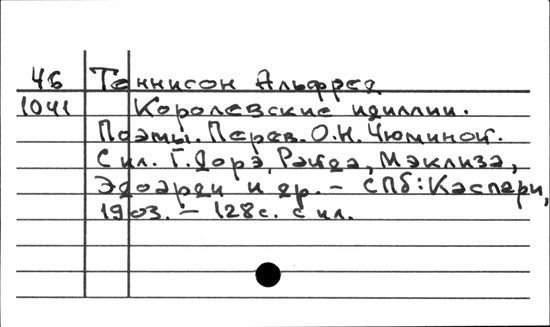 4Б Теннисон Альфред.
1041 Королевские идиллии.
Поэмы. Перев. О.Н. Чюминой.
С ил. Г. Доре, Рэйда, Мэклиза,
Эдоарди и др. – СПб: Каспари,
1903. – 128с. с ил.